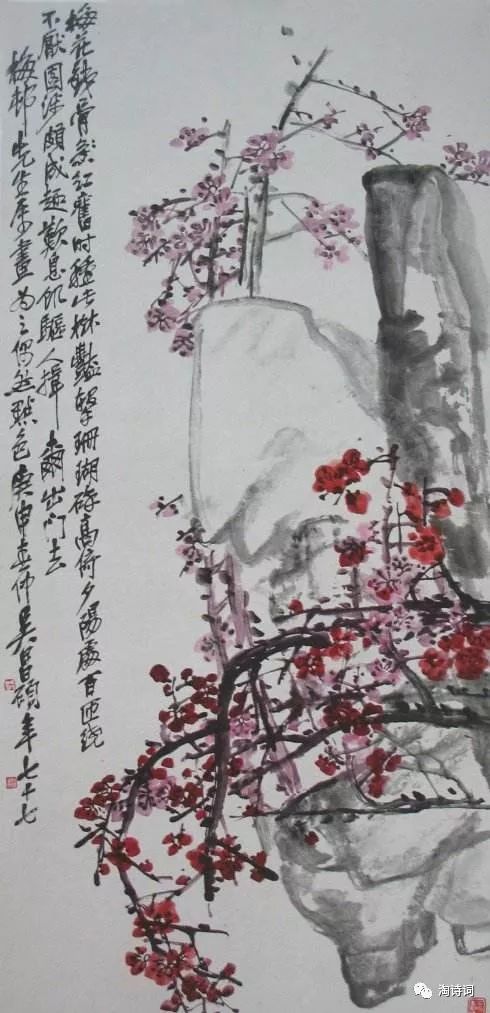 梅花鐵骨紅舊時種此樹豔擊珊瑚碎高倚夕陽處百匝繞
不厭園涉頗成趣歎息飢驅人揖爾出門去
梅邨先生屬畫為之偶然點色庚申春仲吳昌碩年七十七
淘诗词